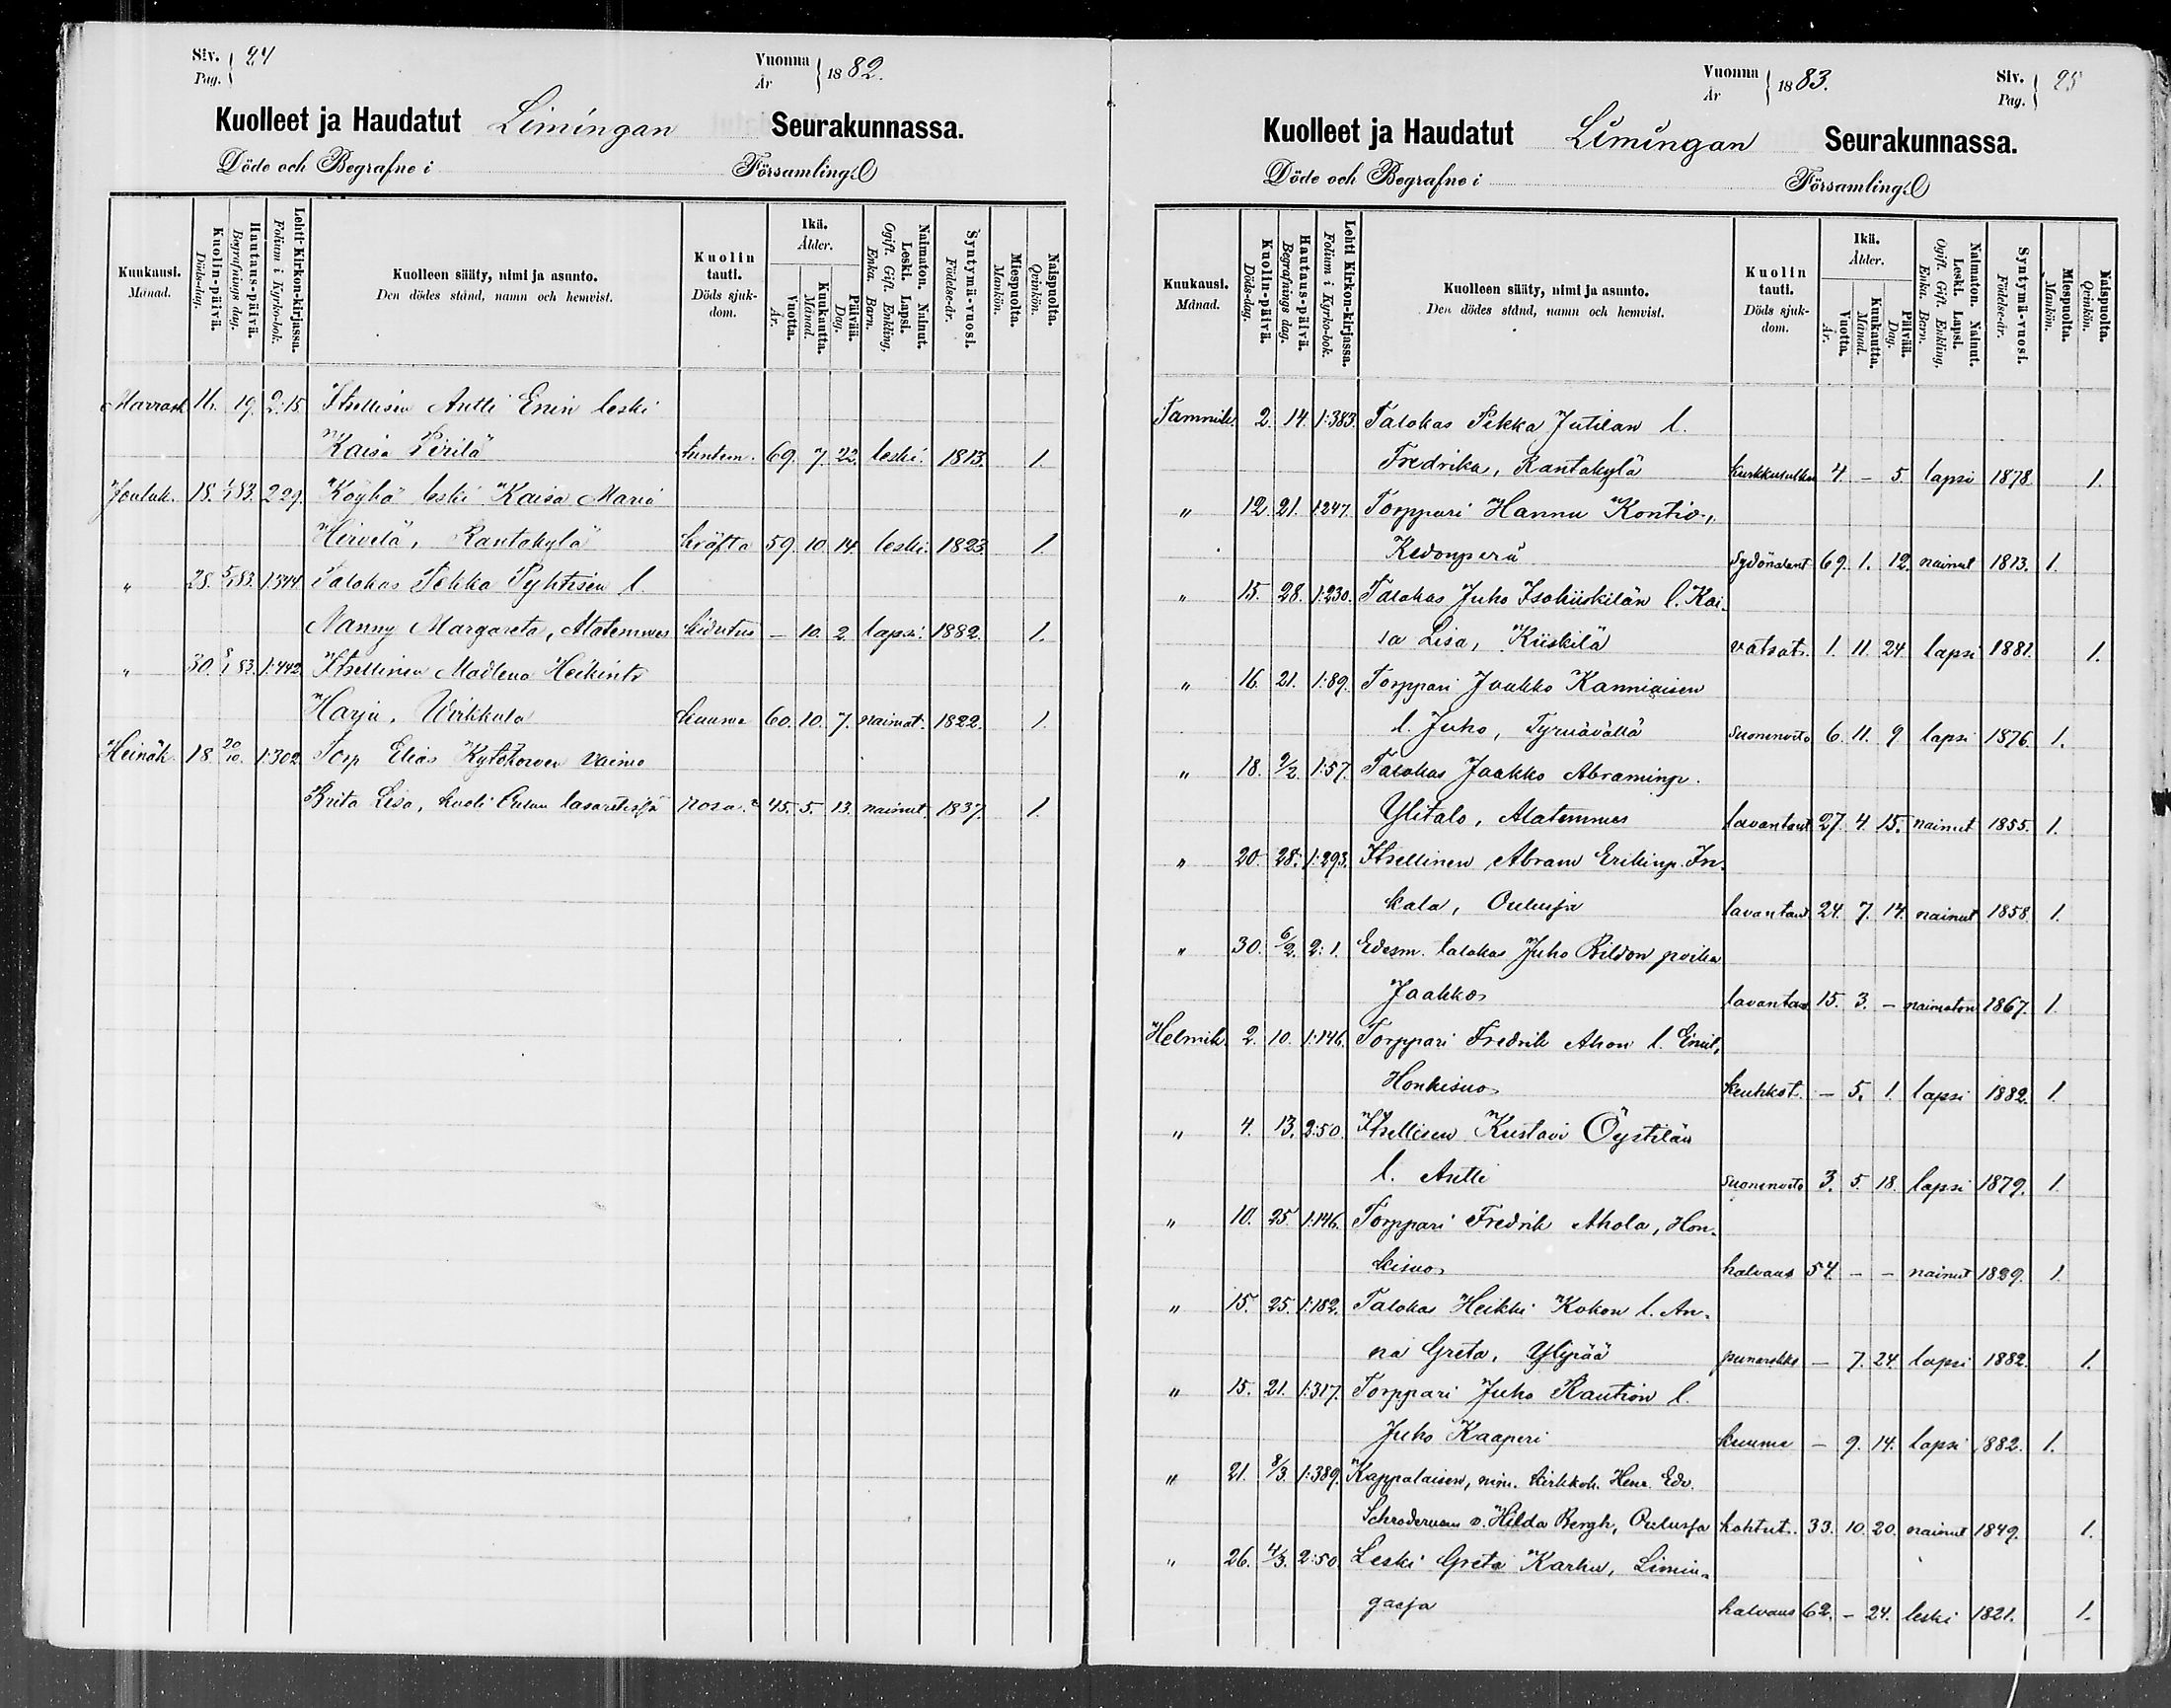 Siv. 24
Pag.
Vuonna 1882.
År
Kuolleet ja Haudatut Limingan Seurakunnassa.
Döde och Begrafne i Församling.
Kuukausi. Månad.
Kuolin-päivä. Döds-dag.
Hautaus-päivä. Begrafnings dag.
Lehti Kirkon-kirjassa. Folium i Kyrko-bok.
Kuolleen sääty, nimi ja asunto.
Den dödes stånd, namn och hemvist.
Kuolin tauti. Döds sjukdom.
Ikä. Ålder.
Vuotta. År.
Kuukautta. Månad.
Päivää. Dag.
Naimaton. Nainut. Leski. Lapsi. Ogift. Gift. Enkling. Enka. Barn.
Syntymä-vuosi. Födelse-år.
Miespuolta. Mankön.
Naispuolta. Qvinkön.
Marrask. 16. 19. 2:15 Itsellisen Antti Enin leski
Kaisa Pirilä tuntem. 69. 7. 22. leski. 1813. 1.
Jouluk. 18. 1/1 83. 229. Köyhä leski Kaisa Maria
Hirvelä, Rantakylä kräfta 59. 10. 14. leski. 1823. 1.
" 28. 5/1 83. 1:344. Talokas Pekka Pyhtisen l.
Nanny Margareta, Alatemmes kidutus – 10. 2. lapsi. 1882. 1.
" 30. 8/1 83. 1:442. Itsellinen Madlena Heikintr
Harju, Wirkkula kuume 60. 10. 7. naimat. 1822. 1.
Heinäk. 18. 20/10. 1:302. Torp. Elias Kylökorven vaimo
Brita Lisa, kuoli Oulun lasaretissa rosa 45. 5. 13. nainut. 1837. 1.
Vuonna 1883.
År
Siv. 25
Pag.
Kuolleet ja Haudatut Limingan Seurakunnassa.
Döde och Begrafne i Församling.
Kuukausi. Månad.
Kuolin-päivä. Döds-dag.
Hautaus-päivä. Begrafnings dag.
Lehti Kirkon-kirjassa. Folium i Kyrko-bok.
Kuolleen sääty, nimi ja asunto.
Den dödes stånd, namn och hemvist.
Kuolin tauti. Döds sjukdom.
Ikä. Ålder.
Vuotta. År.
Kuukautta. Månad.
Päivää. Dag.
Naimaton. Nainut. Leski. Lapsi. Ogift. Gift. Enkling. Enka. Barn.
Syntymä-vuosi. Födelse-år.
Miespuolta. Mankön.
Naispuolta. Qvinkön.
Tammik. 2. 14. 1:383. Talokas Pekka Jutilan l.
Fredrika, Rantakylä 4. – 5. lapsi 1878. 1.
" 12. 21. 1247. Torppari Hannu Kontio,
Kedonperä sydäntaut 69. 1. 12. nainut 1813. 1.
" 15. 28. 1:230. Talokas Juho Isokiiskilän l. Kai-
sa Lisa, Kiiskilä vatsat. 1. 11. 24 lapsi 1881. 1.
" 16. 21. 1:89. Torppari Jaakko Kanniaisen
l. Juho, Tyrnävällä suonenveto 6. 11. 9 lapsi 1876. 1.
" 18. 9/2. 1:57. Talokas Jaakko Abraminp.
Ylitalo, Alatemmes lavantaut 27. 4. 15. nainut 1855. 1.
" 20. 28. 1:293. Itsellinen Abram Erikinp. In-
kala, Oulussa lavantaut 24. 7. 14. nainut 1858. 1.
" 30. 6/2. 2:1. Edesm. talokas Juho Bildon poika
Jaakko lavantau 15. 3. – naimaton 1867. 1.
Helmik. 2. 10. 1:146. Torppari Fredrik Ahon l. Emil,
Honkisuo keuhkot. – 5. 1. lapsi 1882. 1.
" 4. 13. 2:50. Itsellisen Kustavi Öystilän
l. Antti suonenveto 3. 5. 18. lapsi 1879. 1.
" 10. 25. 1:146. Torppari Fredrik Ahola, Hon-
kisuo halvaus 54. – – nainut 1829. 1.
" 15. 25. 1:182. Talokas Heikki Kokon l. An-
na Greta, Ylipää – 7. 24. lapsi 1882. 1.
" 15. 21. 1:317. Torppari Juho Raution l.
Juho Kaaperi kuume – 9. 14. lapsi 1882. 1.
" 21. 8/3. 1:389. Kappalaisen, nim. kirkkoh. Henr. Edv.
Schroderuxen v. Hilda Bergh, Oulussa kohtut. 33. 10. 20. nainut 1849. 1.
" 26. 4/3. 2:50. Leski Greta Karhu, Limin-
gassa halvaus 62. – 24. leski 1821. 1.